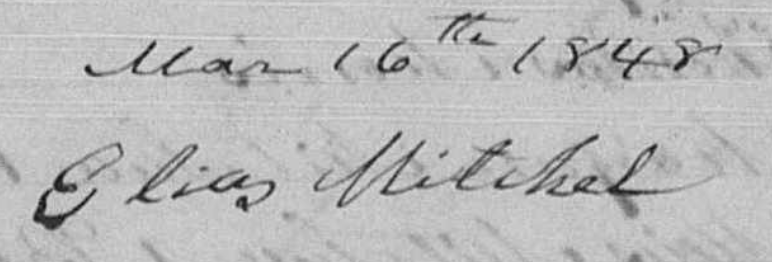 Mar 16th 1848
Elias Mitchel